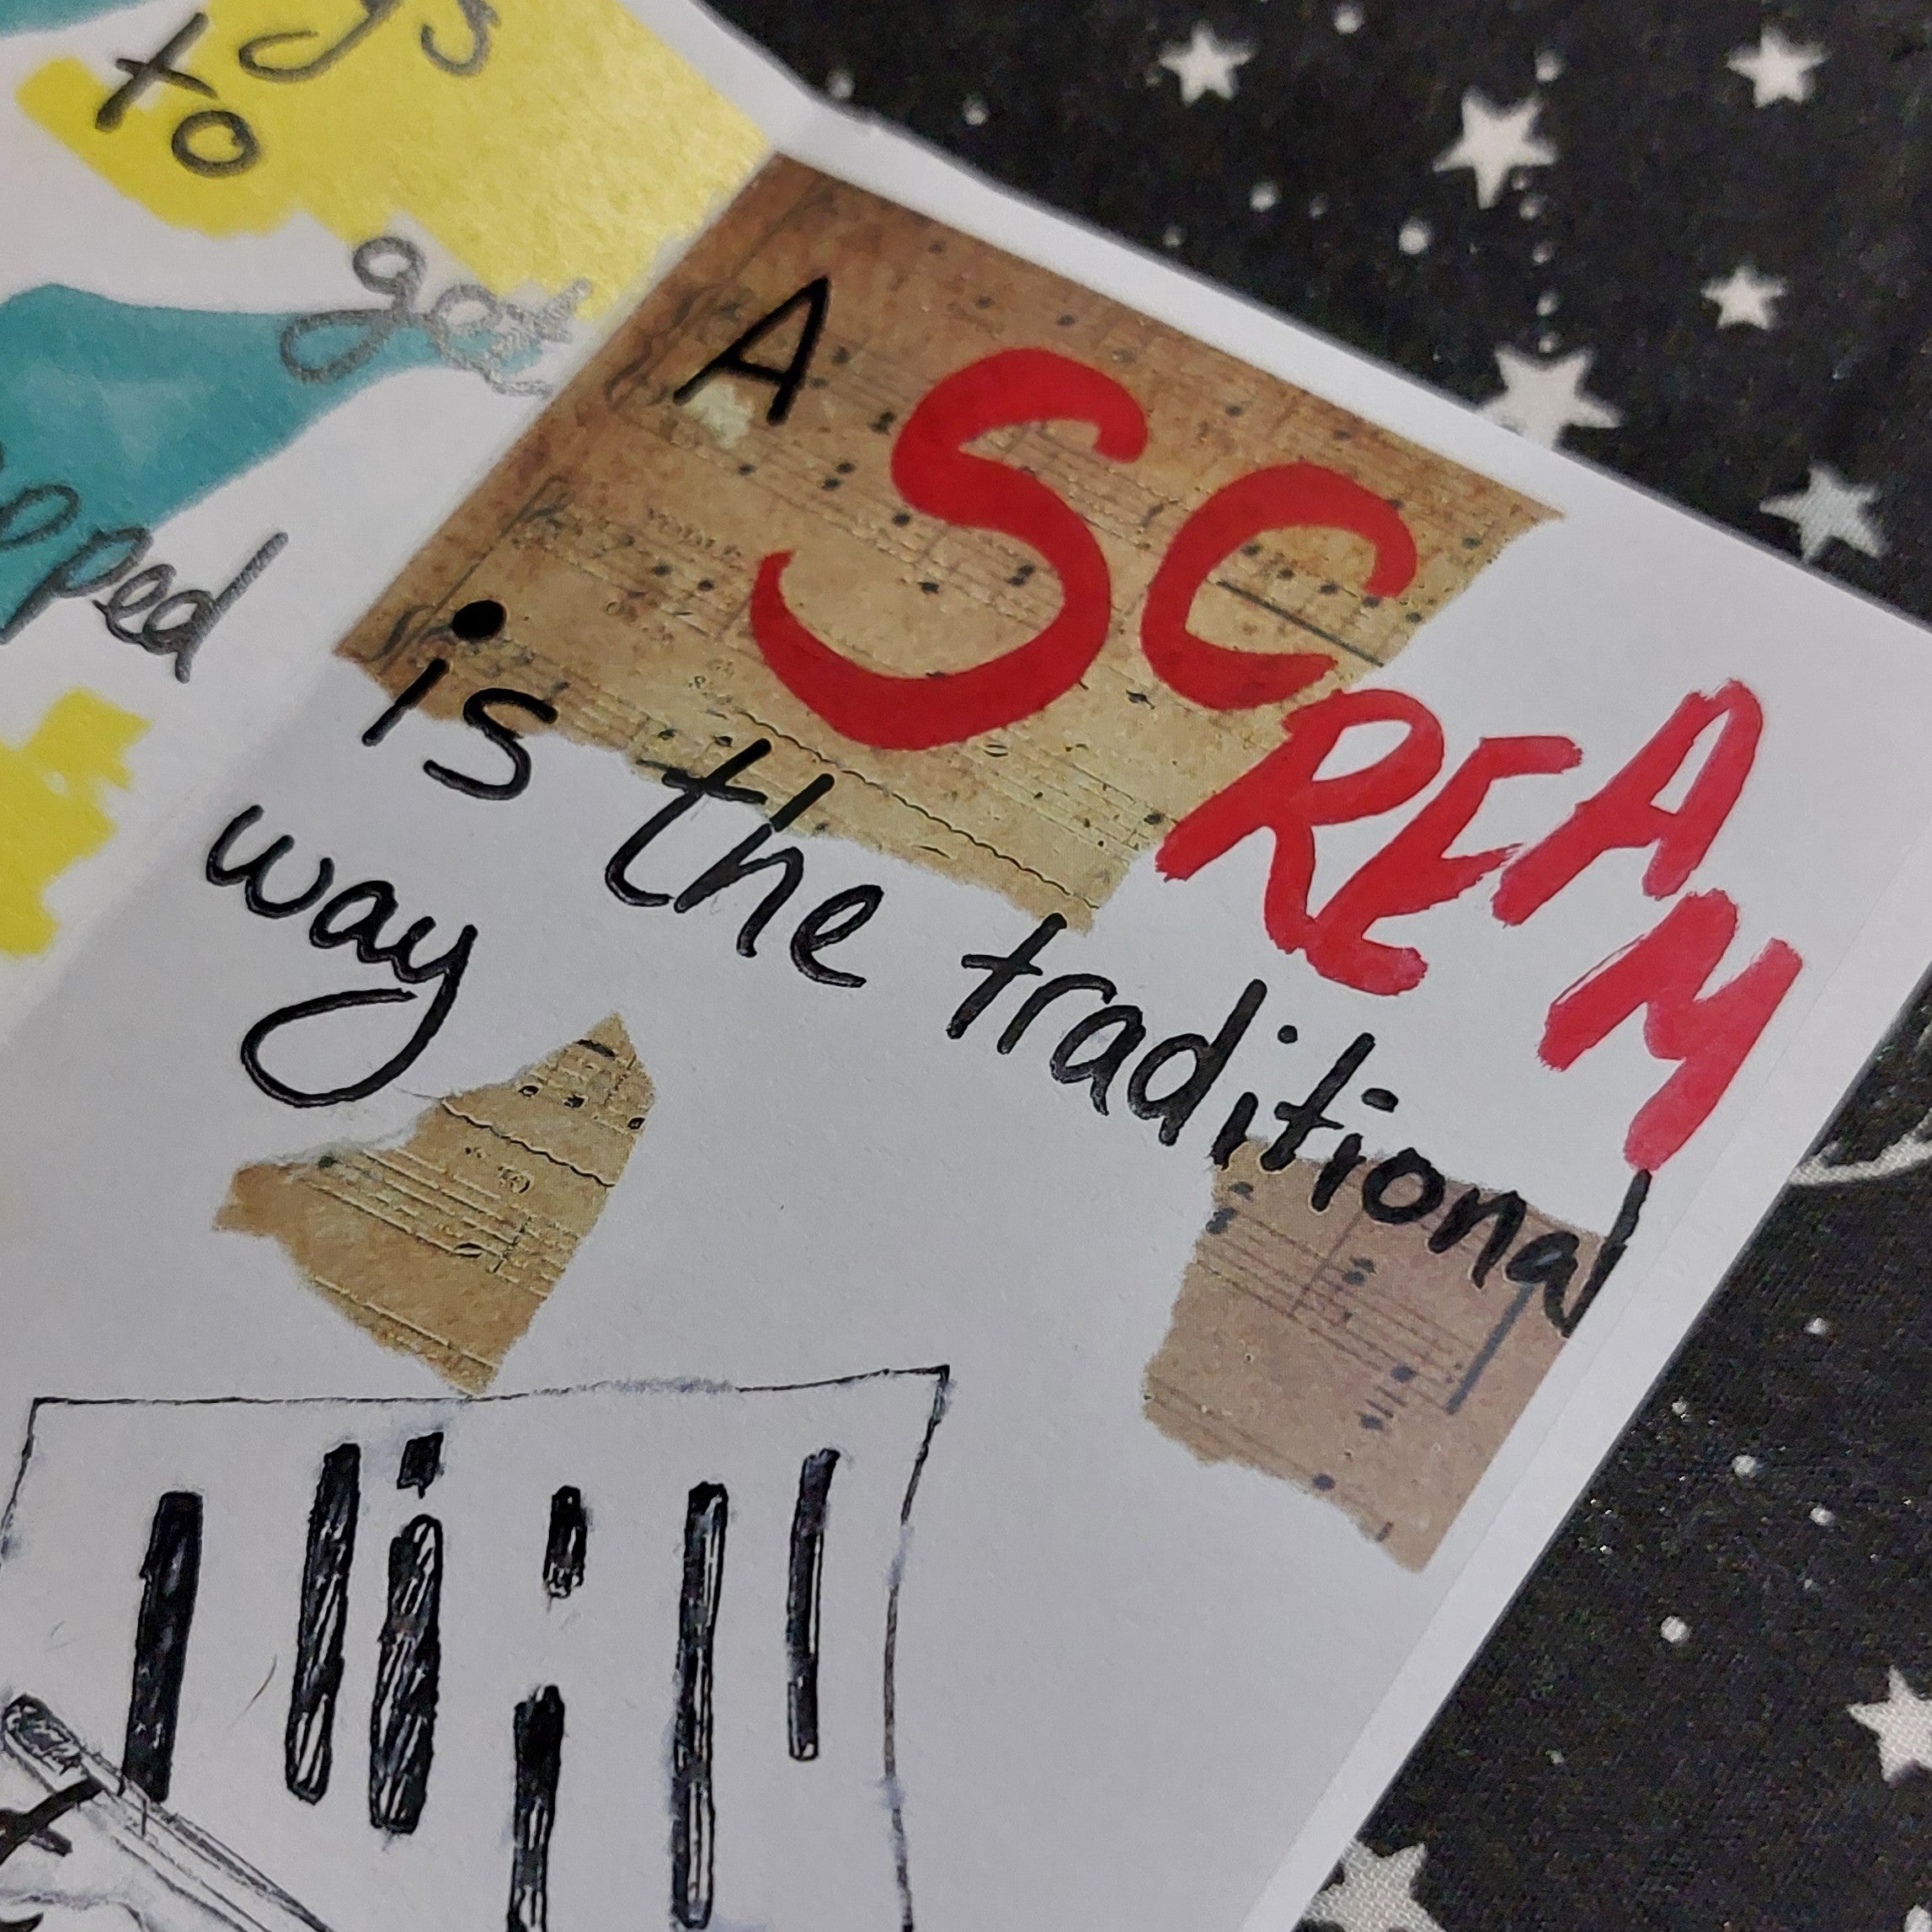 to
get
A SCREAM
is the traditional
way